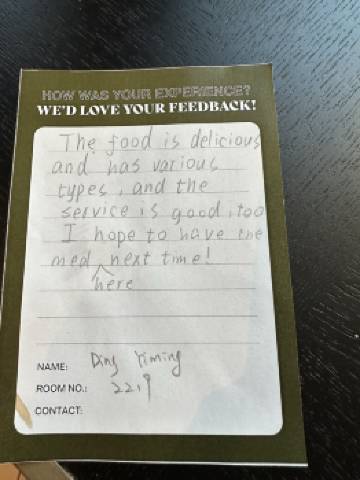 HOW WAS YOUR EXPERIENCE?
WE'D LOVE YOUR FEEDBACK!
The food is delicious
and has various
types, and the
service is good, too
I hope to have the
meal next time!
here
NAME: Ding Yiming
ROOM NO.: 2219
CONTACT: